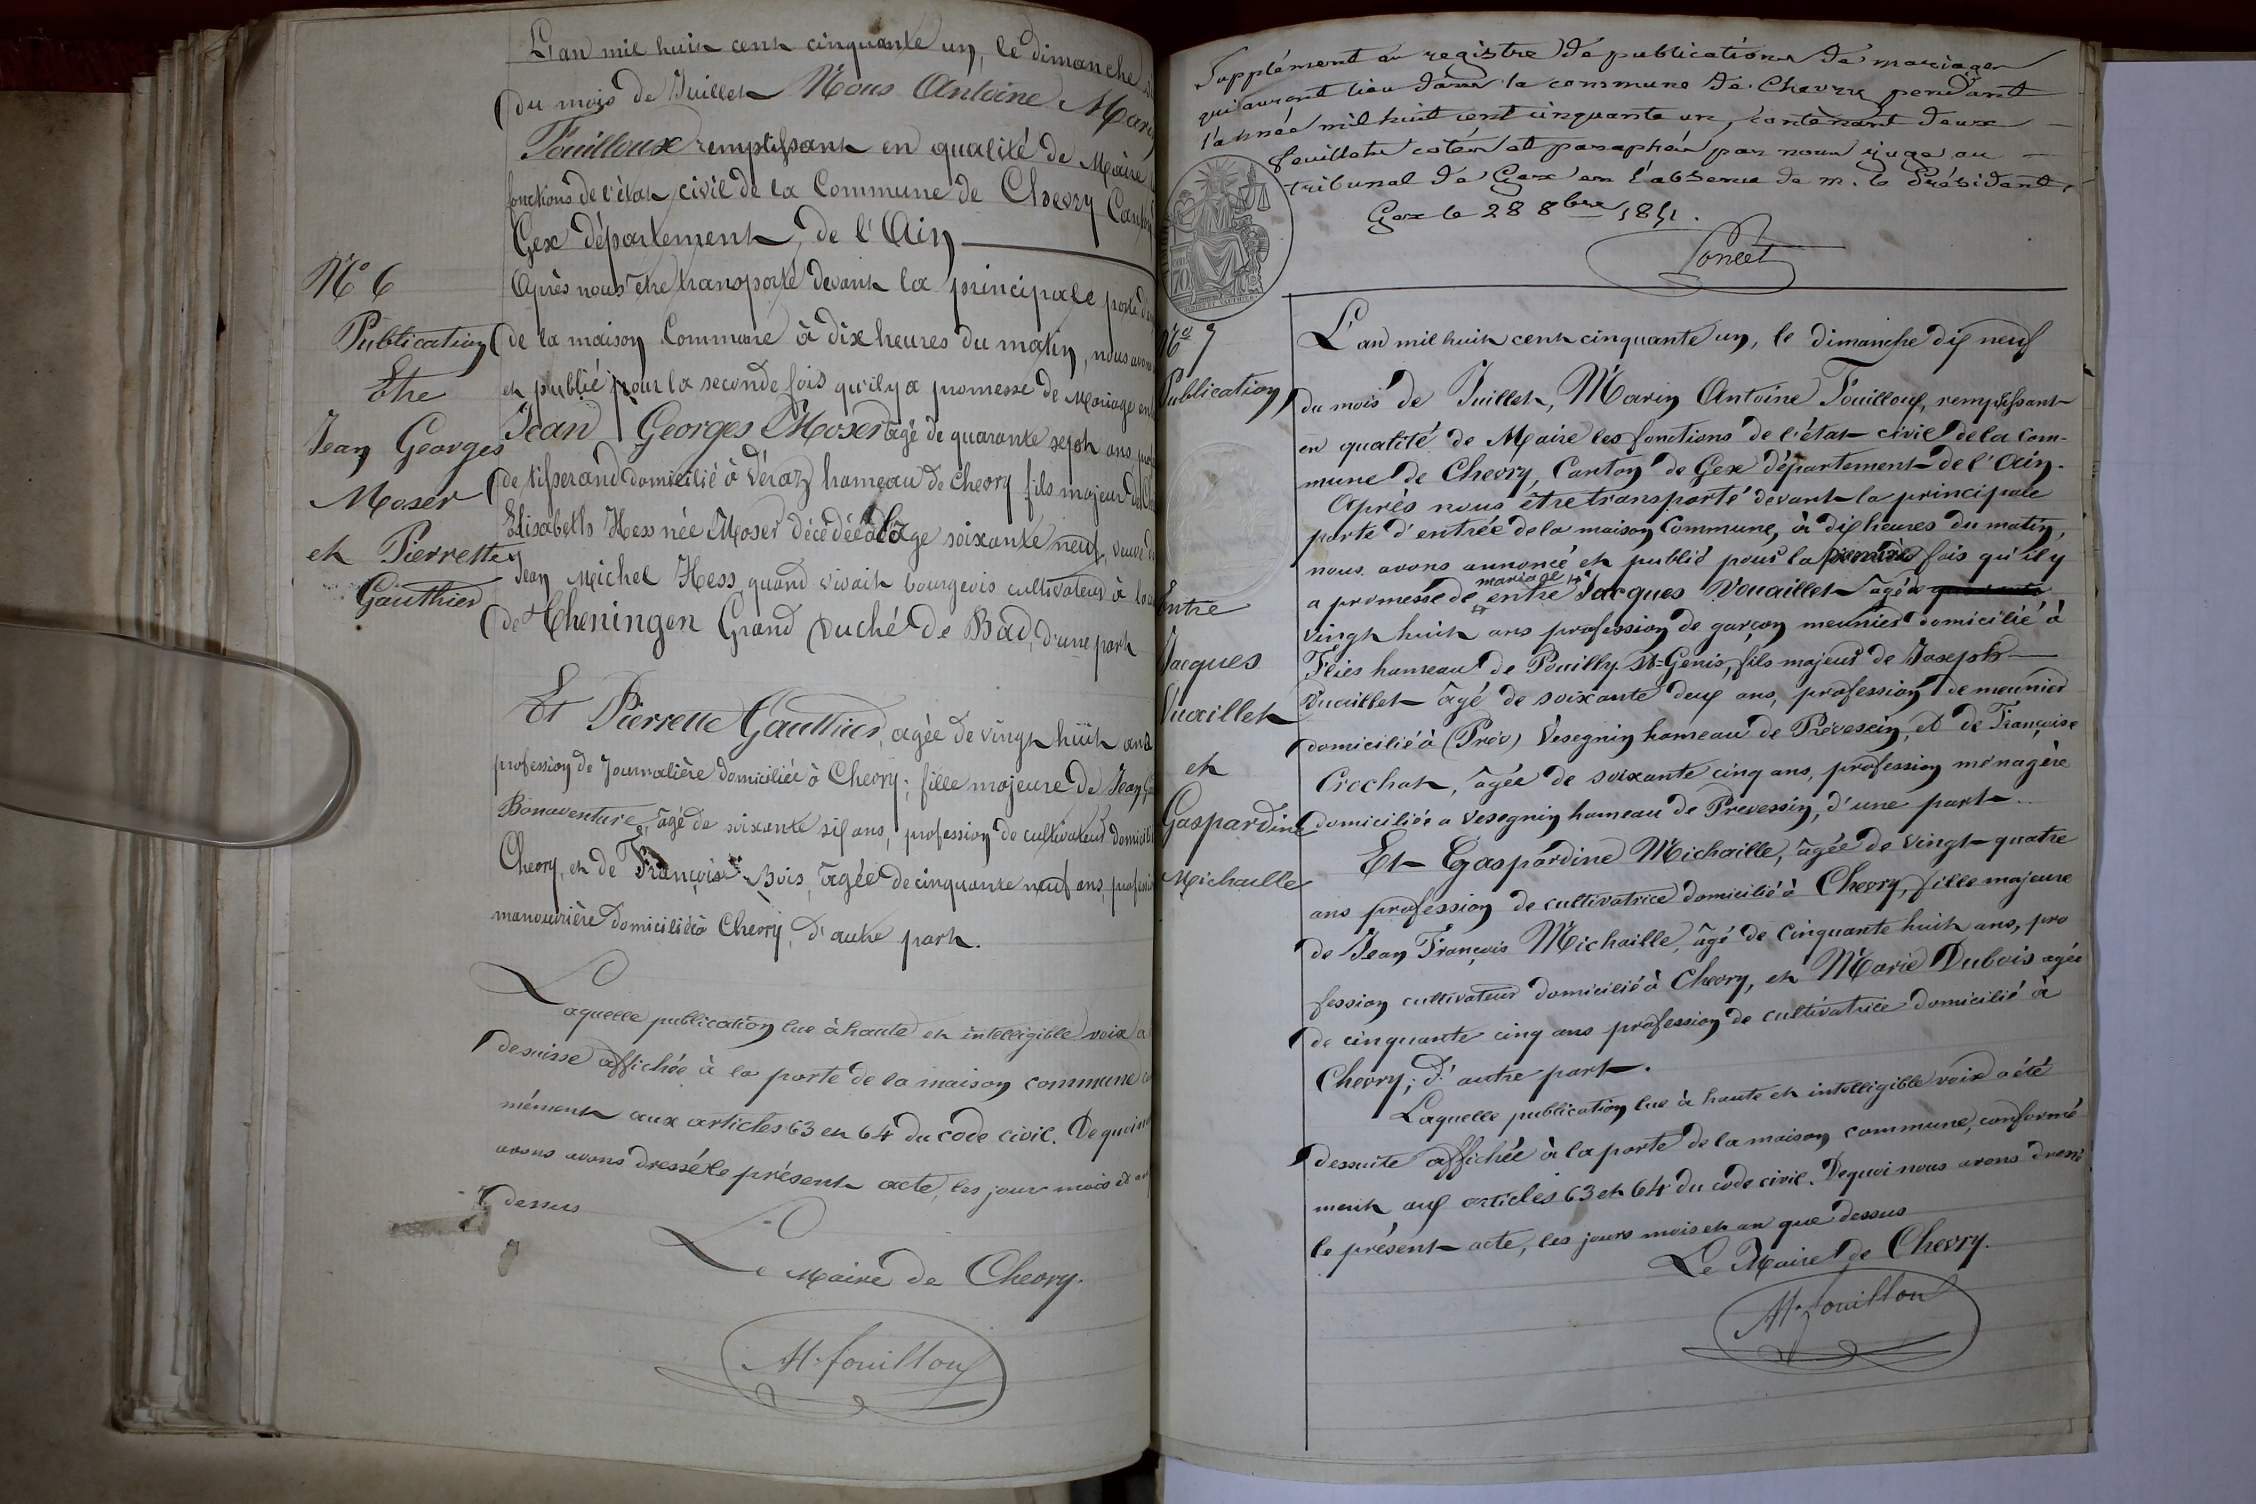 L'an mil huit cent cinquante un, le dimanche
du mois de Juillet Nous Antoine Marin
Fouilloux remplissant en qualité de Maire
fonctions de l'état civil de la Commune de Chevry Canton
Gex département de l'Ain
N° 6
Après nous être transporté devant la principale porte
Publication
de la maison Commune à dix heures du matin, nous avons
Etre
et publié pour la seconde fois qu'il y a promesse de Mariage
Jean Georges
Jean Georges Moser agé de quarante sept ans
Moser
de tisserand domicilié à Véraz hameau de Chevry fils majeur de
et Pierrette
Elisabeth Hess née Moser décédée à l'age soixante neuf, veuve
Gauthier
Jean Michel Hess quand vivait bourgeois cultivateur à
de Theningen Grand Duché de Bad, d'une part
Et Pierrette Gauthier, agée de vingt huit ans
profession de Journalière domiciliée à Chevry; fille majeure de Jean
Bonaventure, âgé de soixante six ans, profession de cultivateur
Chevry, et de Françoise Bois, âgée de cinquante neuf ans,
manouvrière domiciliée à Chevry, d'autre part.
Laquelle publication lue à haute et intelligible voix a
desuisse affichée à la porte de la maison commune
mément aux articles 63 et 64 du code civil. De quoi
avons avons dressé le présent acte, les jour mois et an
dessus
Le Maire de Chevry.
M. fouilloux
Supplément au registre de publications de mariages
qui auront lieu dans la commune de Chevry pendant
l'année mil huit cent cinquante un, contenant deux
feuillets cotés et paraphés par nous juge au
tribunal de Gex en l'absence de m. le Président,
Gex le 28 8bre 1851.
Poncet
N° 7
L'an mil huit cent cinquante un, le dimanche dix neuf
Publication
du mois de Juillet, Marin Antoine Fouilloux, remplissant
en qualité de Maire les fonctions de l'état civil de la Com-
mune de Chevry, Canton de Gex département de l'Ain.
Après nous être transporté devant la principale
porte d'entrée de la maison Commune, à dix heures du matin,
nous avons annoncé et publié pour la première fois qu'il y
mariage
Entre
a promesse de entre Jacques Vouaillet âgé
vingt huit ans profession de garçon meunier domicilié à
Jacques
Flies hameau de Pouilly St-Genis, fils majeur de Joseph
Vuaillet
Vuaillet âgé de soixante deux ans, profession de meunier
domicilié à (Prév) Vesegnin hameau de Prévessin, et de Françoise
et
Crochat, âgée de soixante cinq ans, profession ménagère
Gaspardine
domiciliée a Vesegnin hameau de Prevessin, d'une part.
Michaille
Et Gaspardine Michaille, âgée de vingt quatre
ans profession de cultivatrice domicilié à Chevry, fille majeure
de Jean François Michaille, âgé de cinquante huit ans, pro
fession cultivateur domicilié à Chevry, et Marie Dubois agée
de cinquante cinq ans profession de cultivatrice domicilié à
Chevry; d'autre part.
Laquelle publication lue à haute et intelligible voix a été
dessuite affichée à la porte de la maison commune, conformé
ment aux articles 63 et 64 du code civil. Dequoi nous avons dressé
le présent acte, les jours mois et an que dessus
Le Maire de Chevry.
M. fouilloux